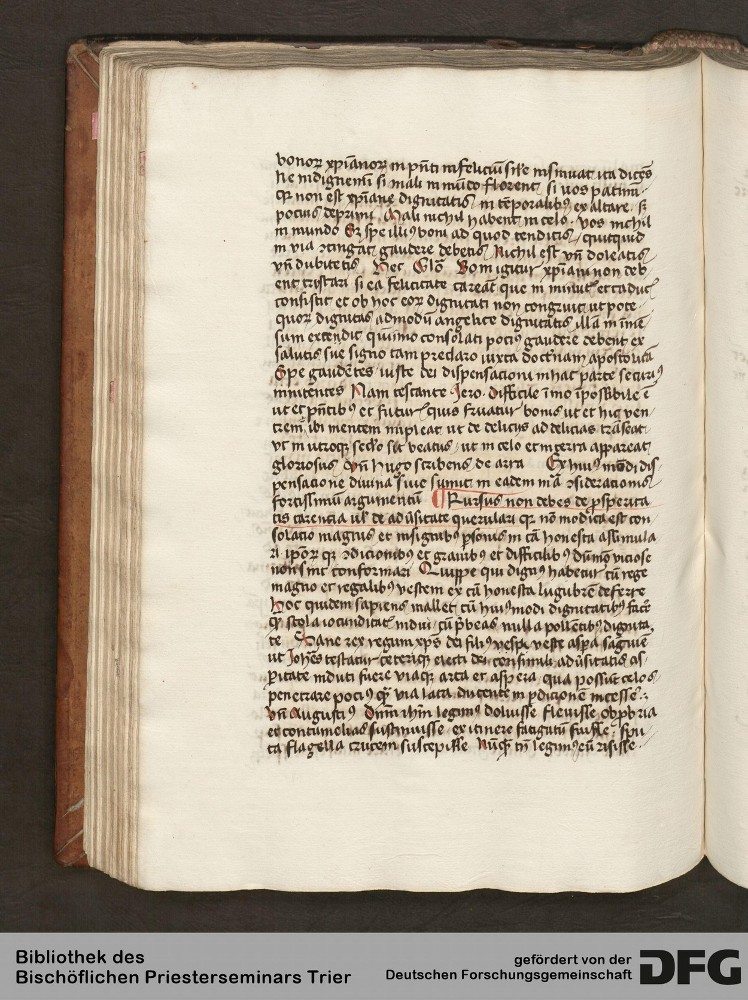 bonoꝝ xp̄ianoꝝ in p̄nti infeliciu sil'e insinuat ita dicēs
ne indignemī si mali in mūdo florent si vos patimī
qꝛ non est xp̄iane dignitatis in tēporalibꝰ exaltare sꝫ
pocius deprimi Mali nichil habent in celo vos nichil
in mundo Sꝫ spe illiꝰ boni ad quod tenditis quitquid
in via ɔtingat gaudere debetis Nichil est vn̄ doleatis
vn̄ dubitetis Hec Glo Boni igitur xp̄iani non deb
ent tristari si ea felicitate careāt que in minutꝭ et caducꝭ
consistit et ob hoc eoꝝ dignitati non congruit ut pote
quoꝝ dignitas admodū angelice dignitatis illā in imē
sum excendit quinimo consolati pociꝰ gaudere debent ex
salutis sue signo tam preclaro iuxta doctrīam apostolicā
Spe gaudētes iuste dei dispensacioni in hac parte securiꝰ
innitentes Nam testante Jero difficile īmo īpossibile ē
ut et pn̄tibꝰ et futurꝭ quis fruatur bonis ut et hic ven
trem ibi mentem impleat ut de deliciis ad delicias trāseat
ut in utroqꝫ sec̄lo sit beatus ut in celo et in terra appareat
gloriosus Vn̄ hugo scribens de arra Ex huiꝰ modi dis
pensacione divina sumit in eadem ɔsideracionis
fortissimū argumentū Rursus non debes de p̱sperita
tis carencia vel de adūsitate querulari qꝛ nō modica est con
solacio magnis et insignibꝰ p̱sonis in cā honesta assimula
ri ip̄oꝝ qꝫ ɔdicionibꝰ et grauibꝰ et difficilibꝰ dūmō viciose
non sint conformari Quippe qui dignꝰ habetur cū rege
magno et regalibꝰ vestem ex cā honesta lugubrē deferre
Hoc quidem sapiens mallet cū huiꝰmodi dignitatibꝰ facē
qꝫ stola iocunditatꝭ indui cū plebeis nulla pollentibꝰ dignita
te Sane rex regum xp̄s dei filiꝰ vespi veste asp̱a sagine
ut Joh̄es testatur ceteriqꝫ electi dei consimili adūsitatis as
p̱itate induti fuere viaqꝫ arta et aspera qua possūt celos
penetrare pociꝰ qꝫ via lata ducente in p̱dicionē incesse
Vn̄ Augustiꝰ Dn̄m ih̄m legimꝰ doluisse flevisse obp̱bria
et contumelias sustinuisse ex itinere fatigatū fuisse spu
ta flagella crucem suscepisse Nūqꝫ tn̄ legimꝰ eū risisse
Bibliothek des
Bischöflichen Priesterseminars Trier
gefördert von der
Deutschen Forschungsgemeinschaft
DFG